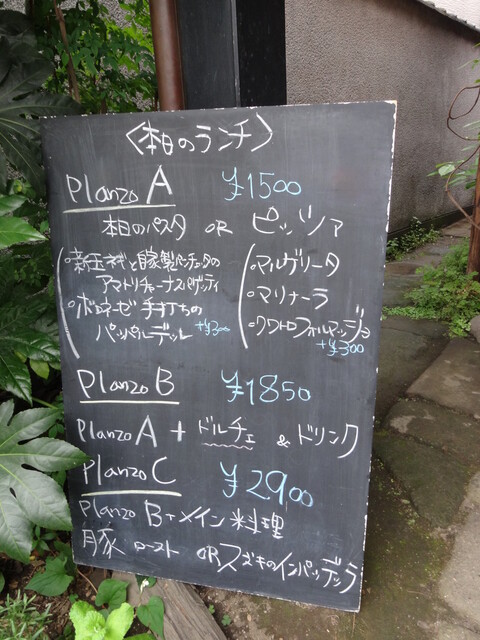 〈本日のランチ〉
Planzo A ¥1500
本日のパスタ OR ピッツァ
・新玉ネギと自家製パンチェッタの
アマトリチャーナスパゲッティ
・ボロネーゼ 手打ちの
パッパルデッレ +¥300
・マルゲリータ
・マリナーラ
・クワトロフォルマッジョ
+¥300
Planzo B ¥1850
Planzo A + ドルチェ & ドリンク
Planzo C ¥2900
Planzo B + メイン料理
豚 ロースト OR スズキのインパデッラ